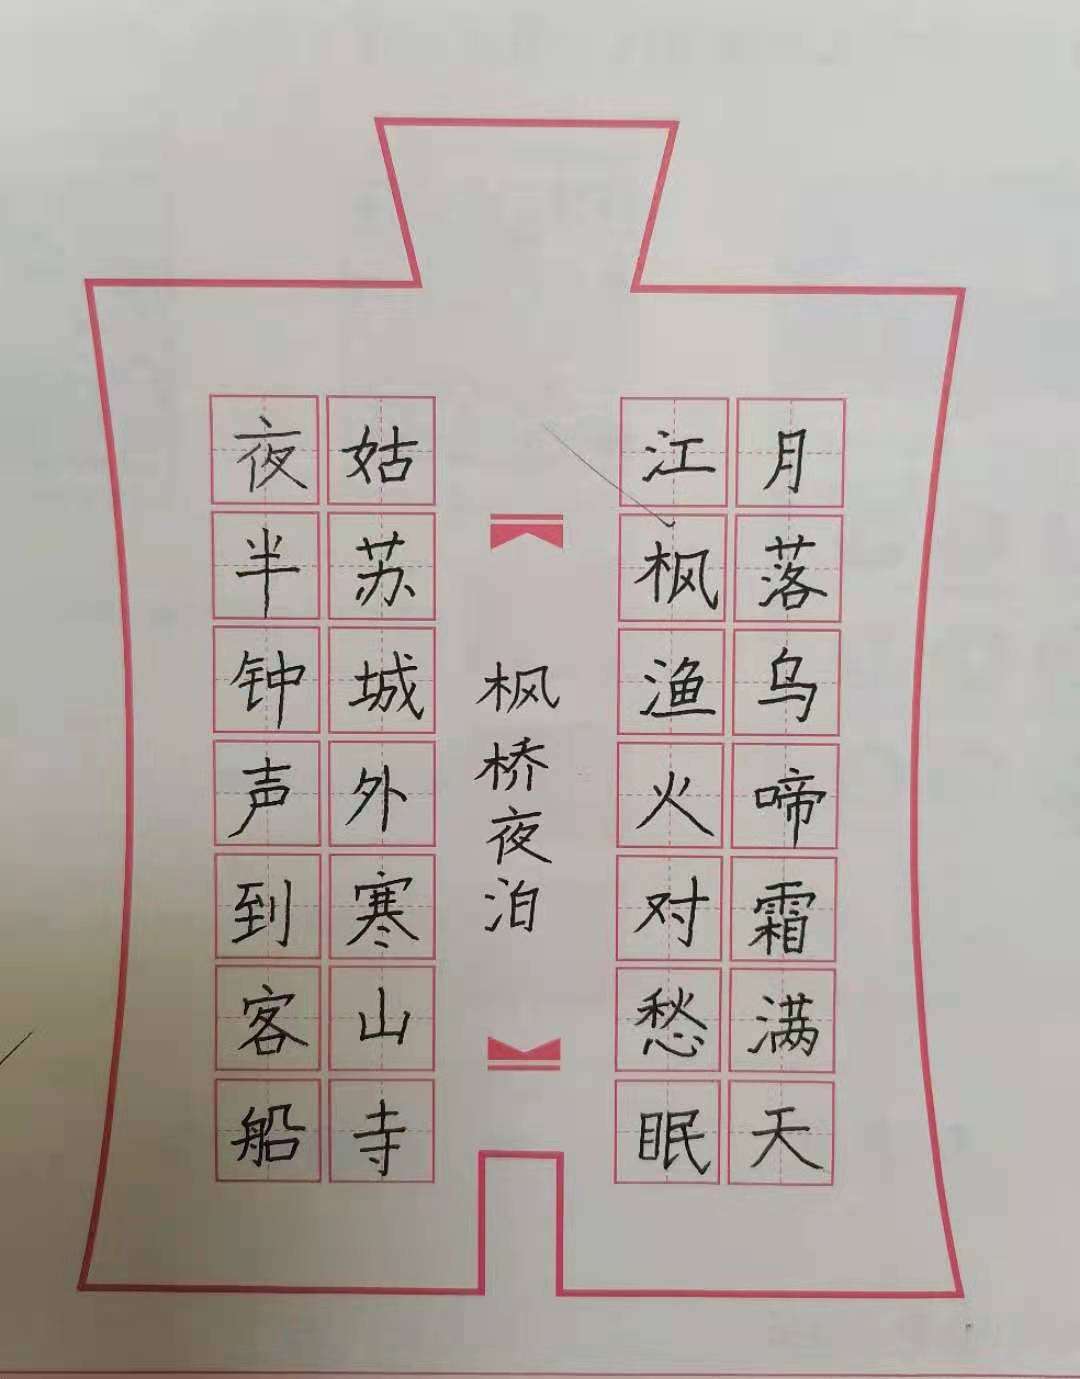 月落乌啼霜满天
江枫渔火对愁眠
枫桥夜泊
姑苏城外寒山寺
夜半钟声到客船